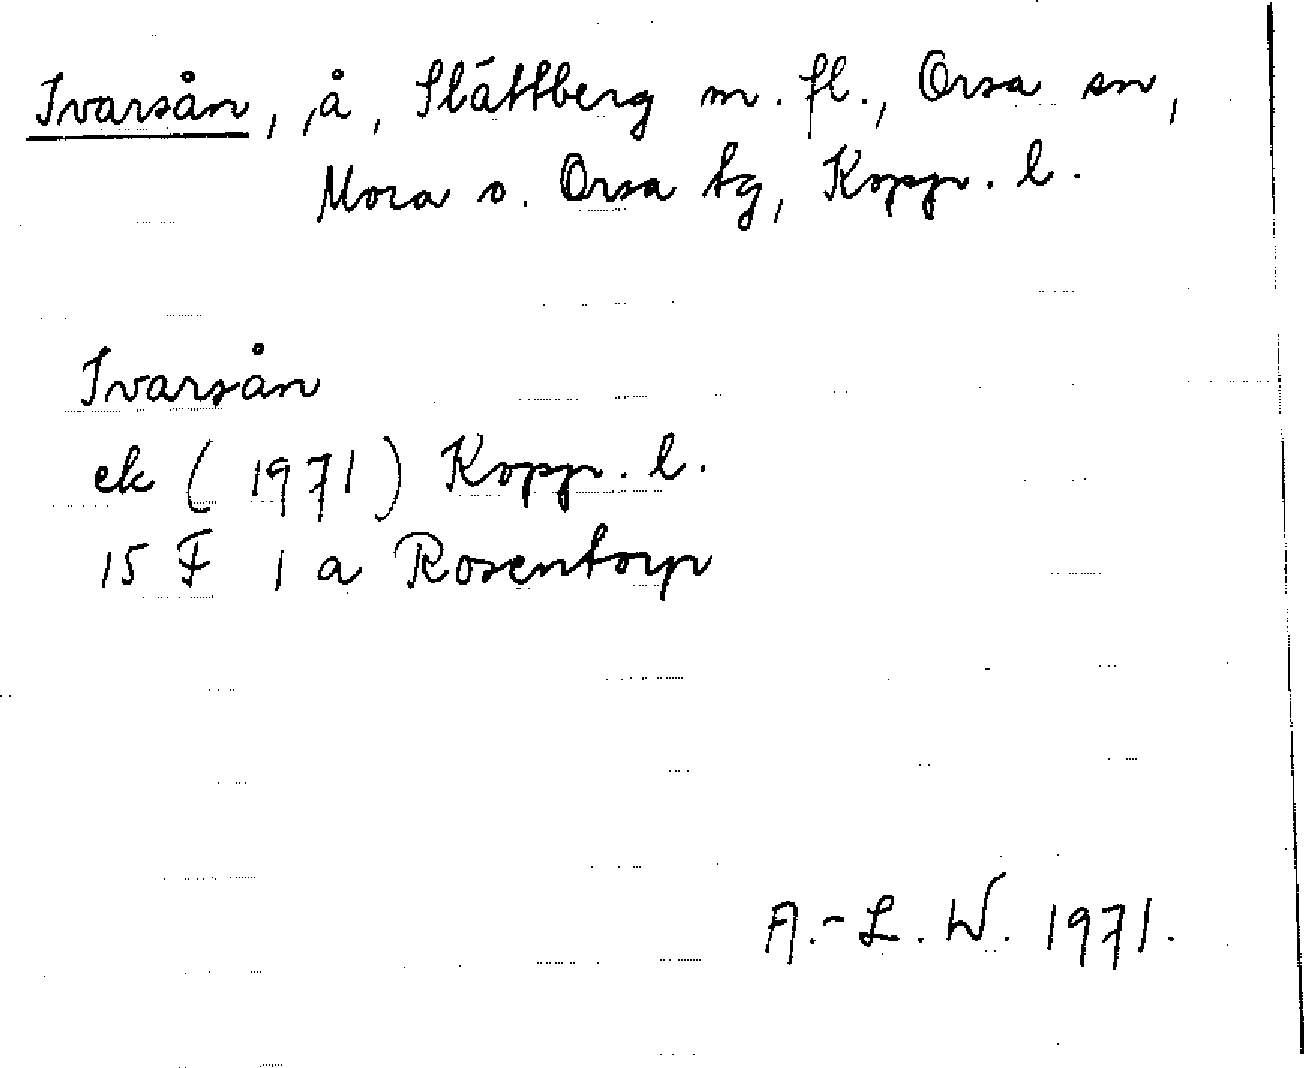 Ivarsån, å, Slättberg m. fl., Orsa sn,
Mora o. Orsa tg, Kopp. l.
Ivarsån
ek (1971) Kopp. l.
15 F 1 a Rosentorp
A.-L. W. 1971.